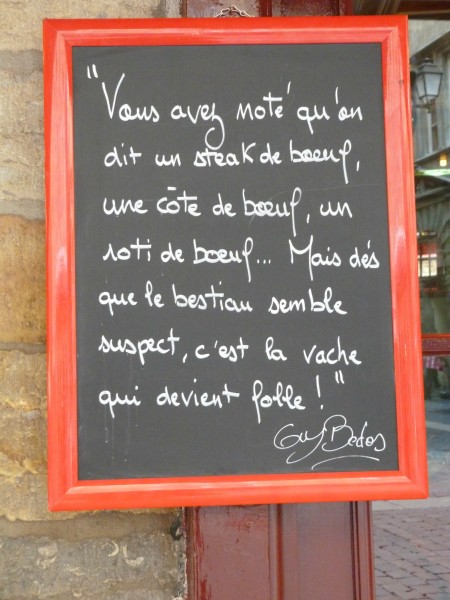 "Vous avez noté qu'on
dit un steak de boeuf,
une côte de boeuf, un
roti de boeuf... Mais dés
que le bestiau semble
suspect, c'est la vache
qui devient folle !"
Guy Bedos